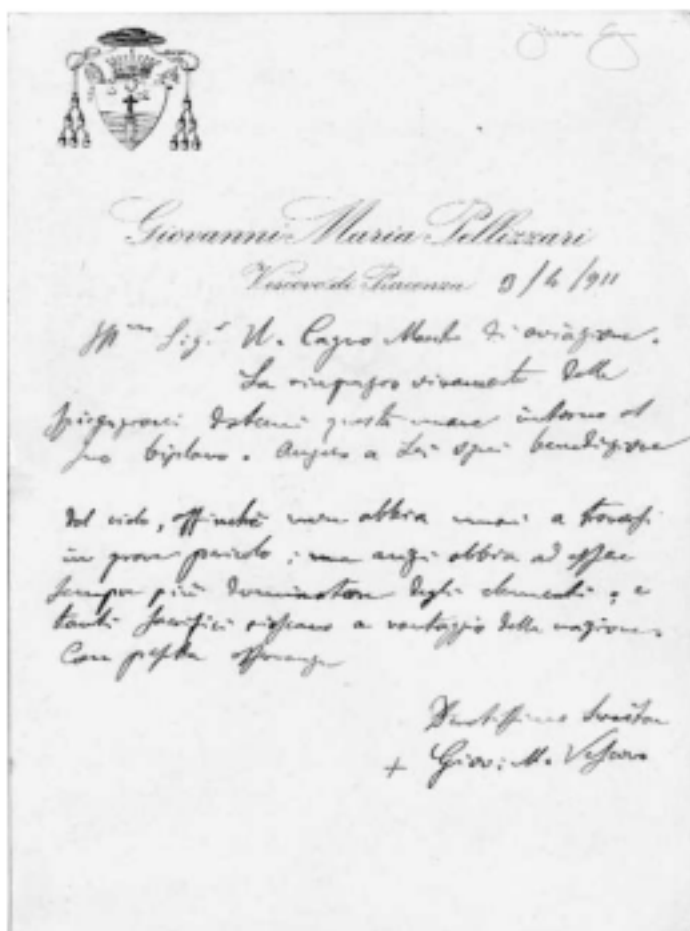 Giovanni Maria Pellizzari
Vescovo di Piacenza 3/4/911
Sig.r U. Cagno di aviazione.
La ringrazio vivamente delle
spiegazioni datemi intorno al
suo biplano. Auguro a Lei ogni benedizione
del cielo, affinché non abbia mai a trovarsi
in grave pericolo; ma anzi abbia ad essere
sempre più dominatore degli elementi; e
tanti sacrifici a vantaggio della nazione.
Con
Devotissimo
+ Giov: M. Vescovo